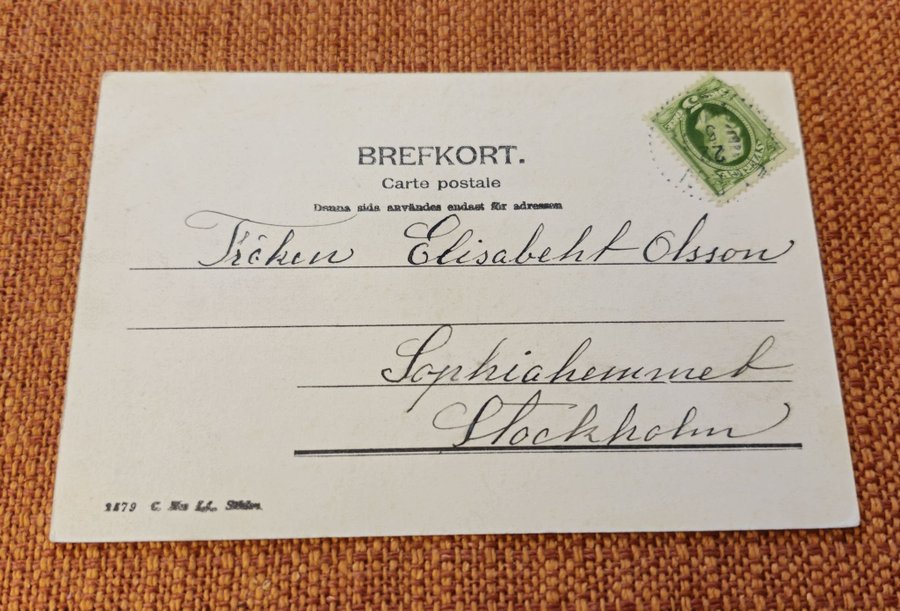 BREFKORT.
Carte postale
Denna sida användes endast för adressen
Fröken Elisabeht Olsson
Sophiahemmet
Stockholm
5